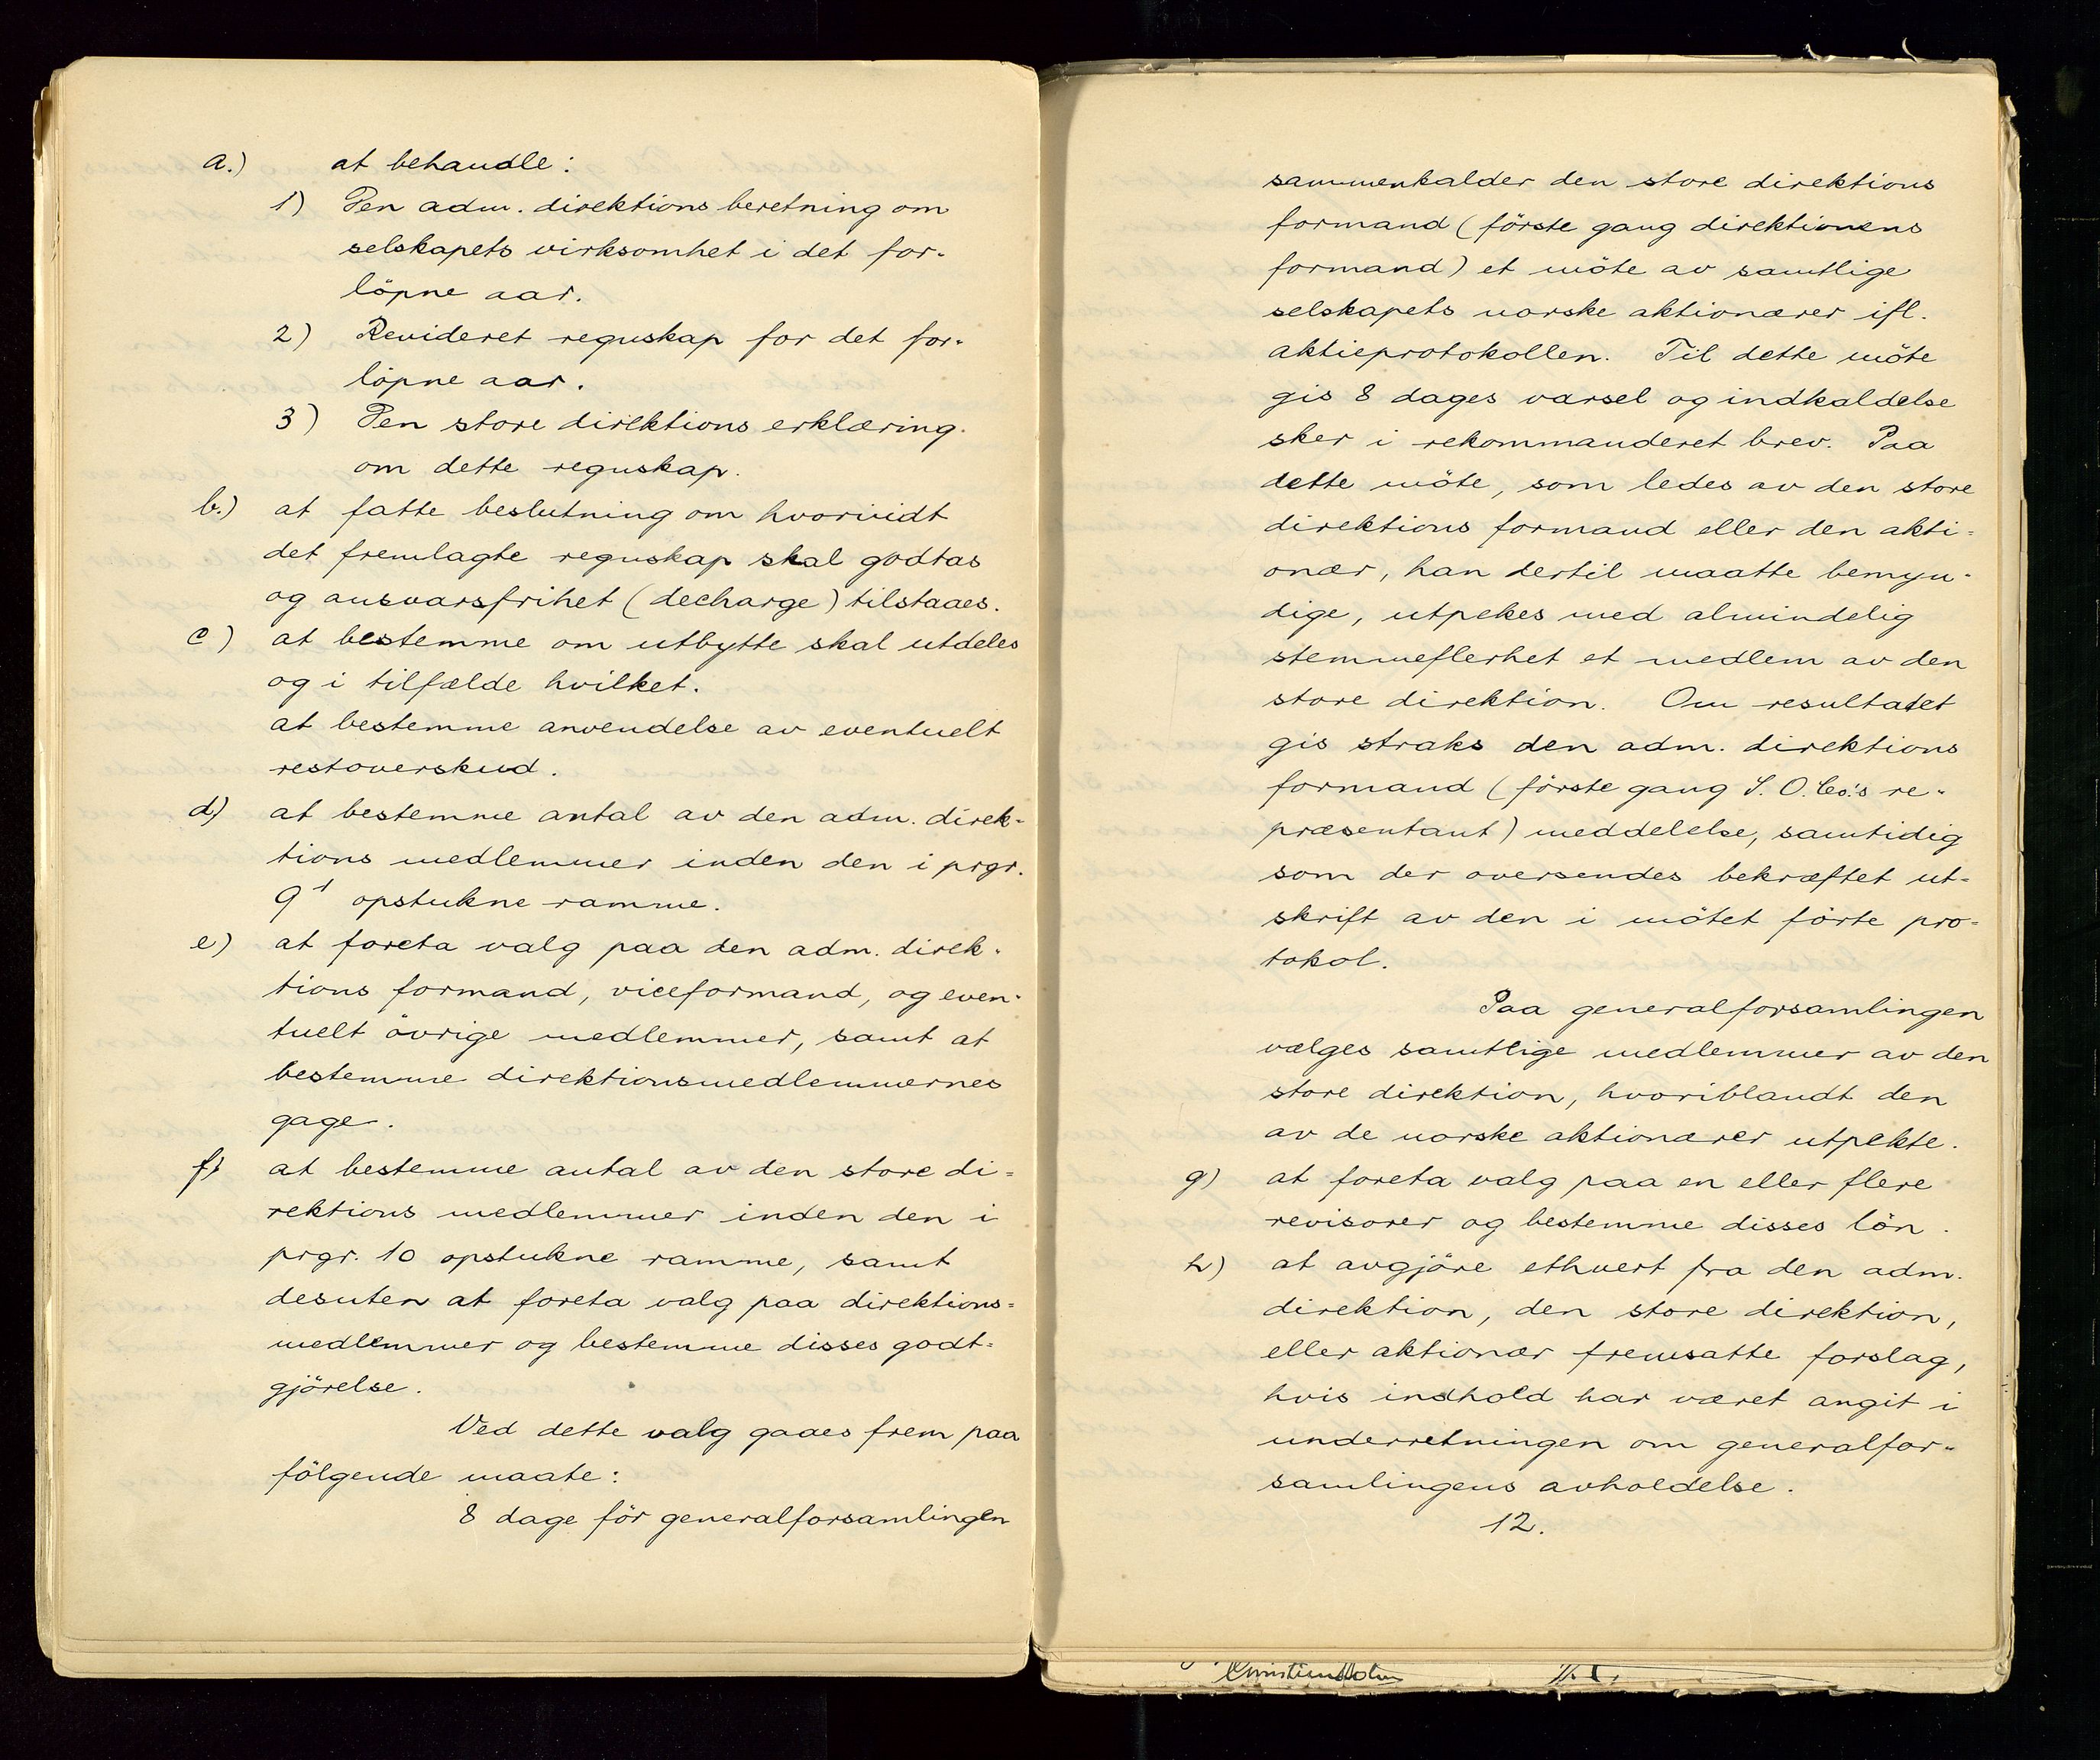 a.) at behandle:
1) Den adm. direktions beretning om
selskapets virksomhet i det for-
löpne aar.
2) Revideret regnskap for det for-
löpne aar.
3) Den store direktions erklæring
om dette regnskap.
b.) at fatte beslutning om hvorvidt
det fremlagte regnskap skal godtas
og ansvarsfrihet (decharge) tilstaaes.
c) at bestemme om utbytte skal utdeles
og i tilfælde hvilket.
at bestemme anvendelse av eventuelt
restoverskud.
d) at bestemme antal av den adm. direk-
tions medlemmer inden den i prgr.
9 opstukne ramme.
e) at foreta valg paa den adm. direk-
tions formand, viceformand, og even-
tuelt övrige medlemmer, samt at
bestemme direktionsmedlemmernes
gage.
f) at bestemme antal av den store di-
rektions medlemmer inden den i
prgr. 10 opstukne ramme, samt
desuten at foreta valg paa direktions-
medlemmer og bestemme disses godt-
gjörelse.
Ved dette valg gaaes frem paa
fölgende maate:
8 dage för generalforsamlingen
sammenkalder den store direktions
formand (förste gang direktionens
formand) et möte av samtlige
selskapets norske aktionærer ifl.
aktieprotokollen. Til dette möte
gis 8 dages varsel og indkaldelse
sker i rekommanderet brev. Paa
dette möte, som ledes av den store
direktions formand eller den akti-
onær, han dertil maatte bemyn-
dige, utpekes med almindelig
stemmeflerhet et medlem av den
store direktion. Om resultatet
gis straks den adm. direktions
formand (förste gang S. O. Co's re-
præsentant) meddelelse, samtidig
som der oversendes bekræftet ut-
skrift av den i mötet förte pro-
tokol.
Paa generalforsamlingen
vælges samtlige medlemmer av den
store direktion, hvoriblandt den
av de norske aktionærer utpekte.
g) at foreta valg paa en eller flere
revisorer og bestemme disses lön.
h) at avgjöre ethvert fra den adm.
direktion, den store direktion,
eller aktionær fremsatte forslag,
hvis indhold har været angit i
underretningen om generalfor-
samlingens avholdelse.
12.